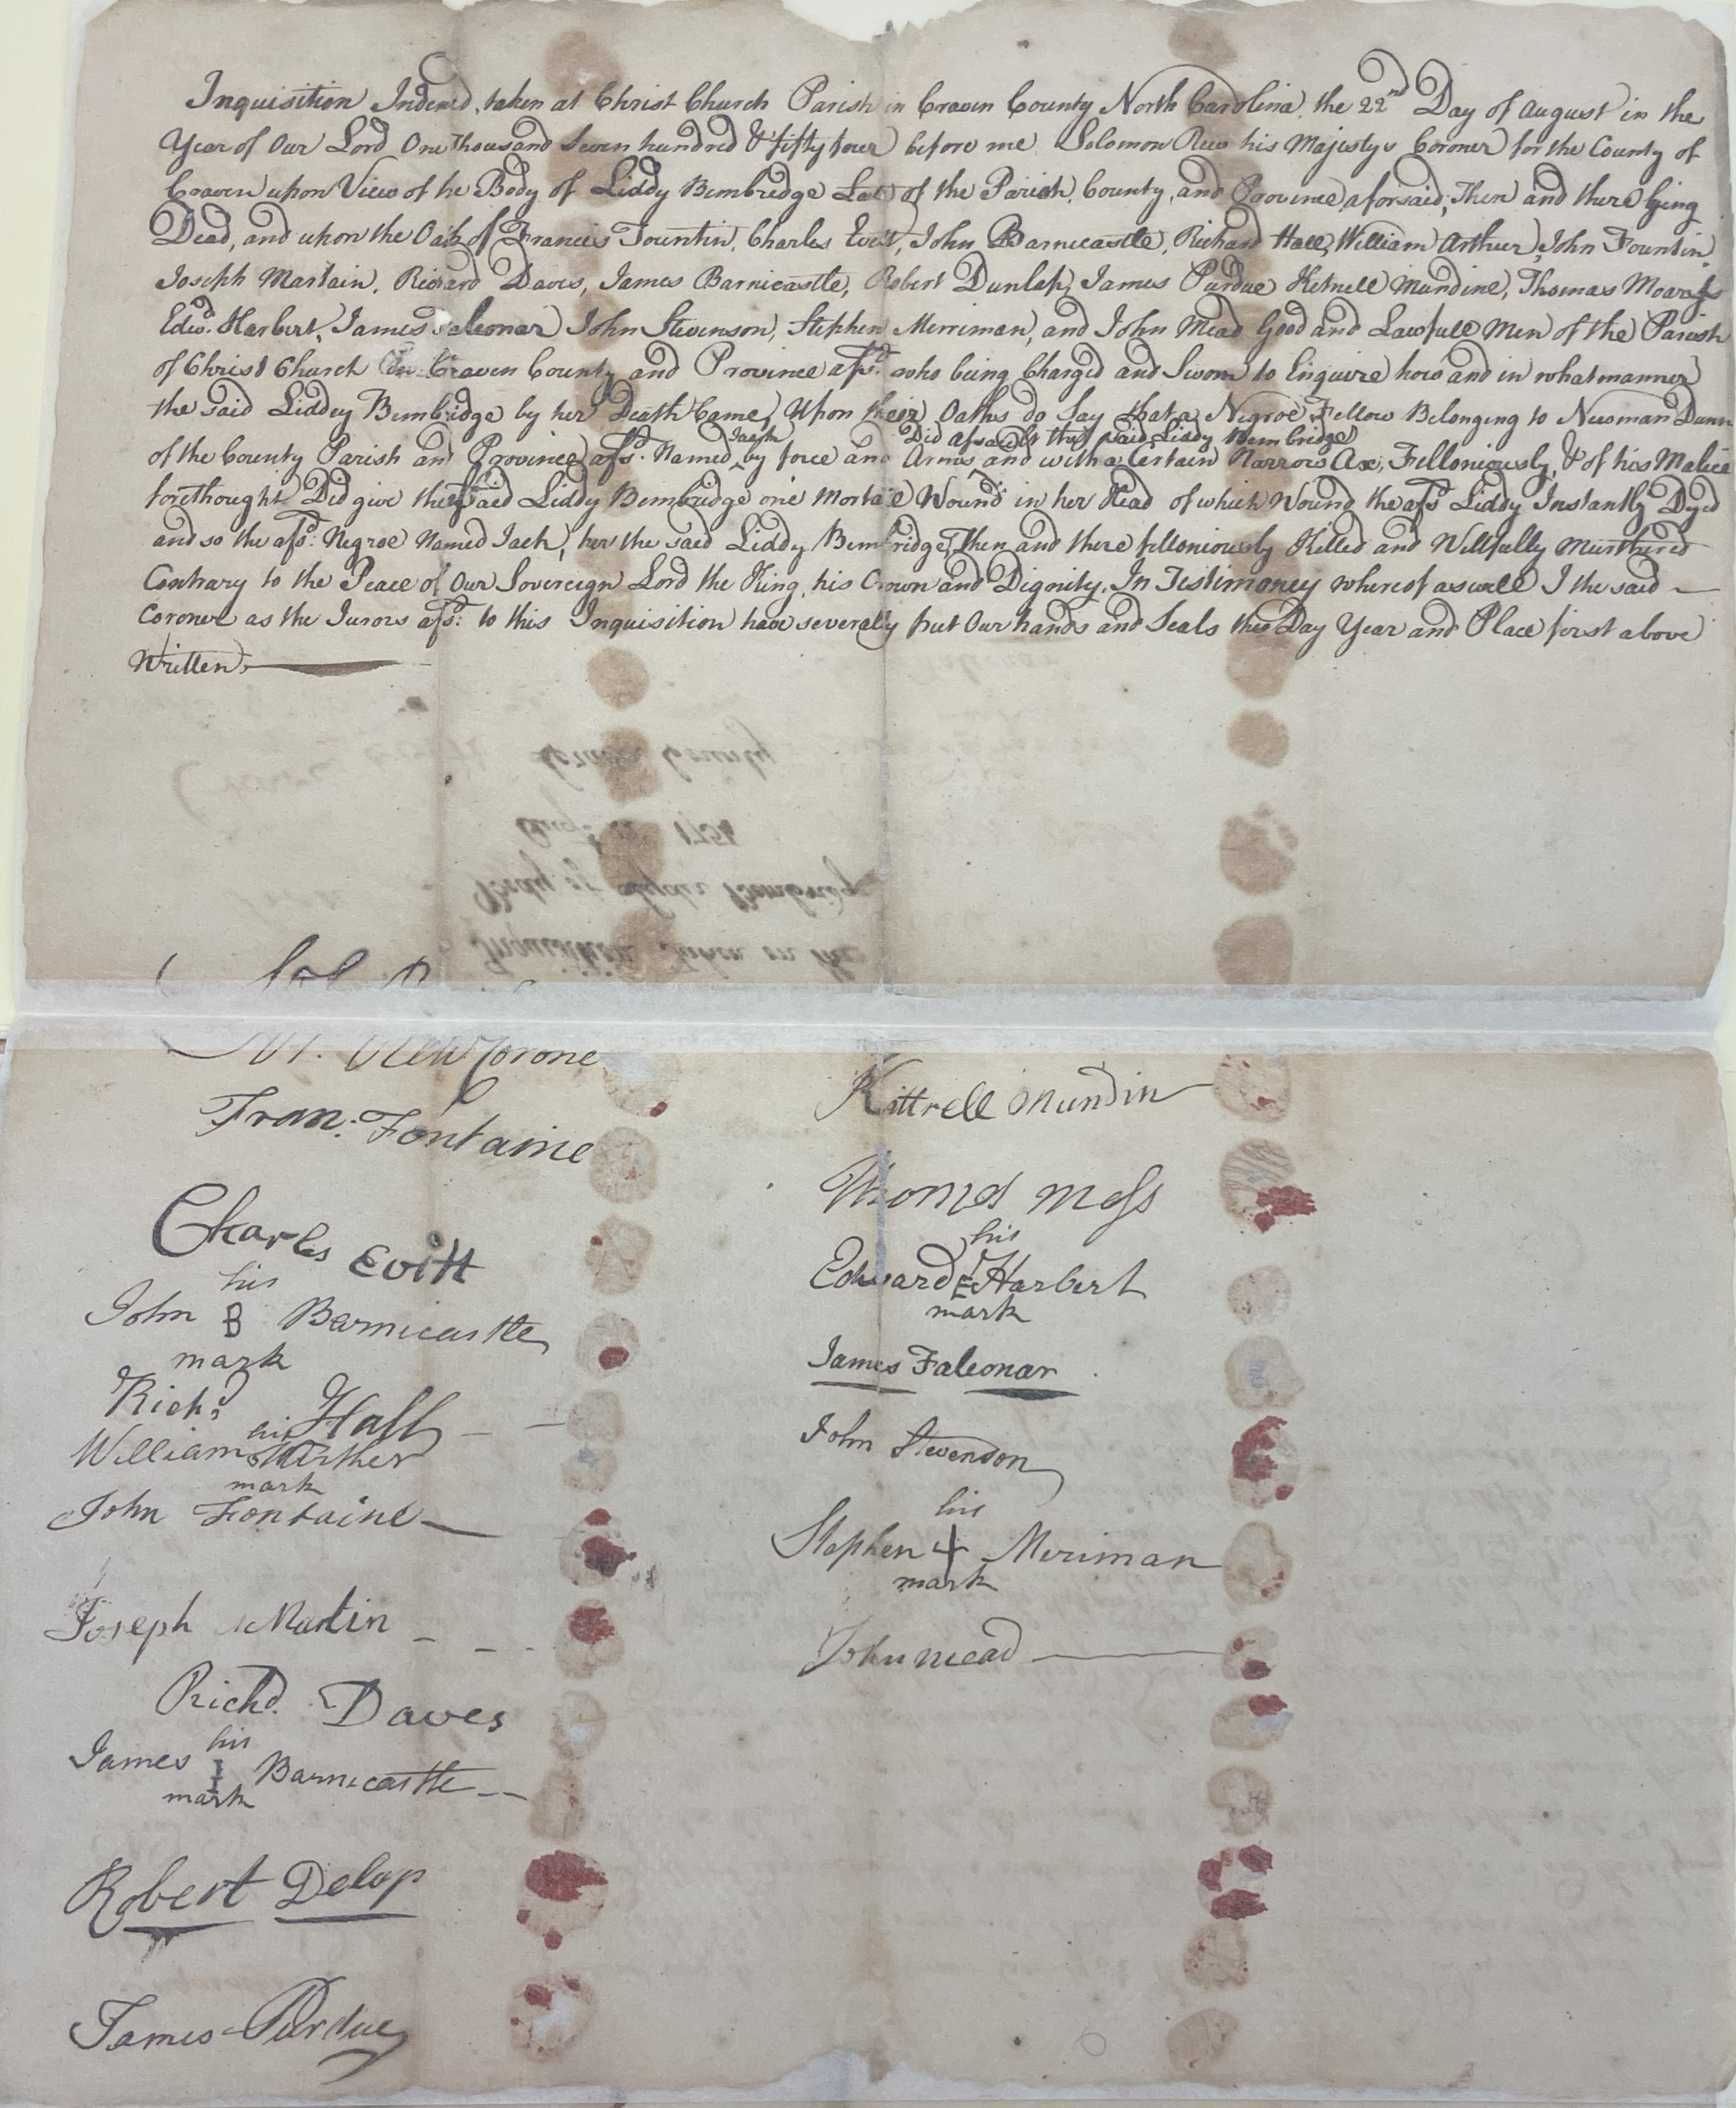 Inquisition Indented, taken at Christ Church Parish in Craven County North Carolina, the 22nd Day of August in the
Year of Our Lord One Thousand Seven hundred & fifty four before me Solomon Rew his Majestys Coroner for the County of
Craven upon View of the Body of Liddy Bembridge Late of the Parish, County, and Province aforsaid, Then and there lying
Dead, and upon the Oath of Francis Fountin, Charles Evitt, John Barnicastle, Richard Hall, William Arthur, John Fountin,
Joseph Martain, Richard Daves, James Barnicastle, Robert Dunlap, James Purdue Ketrell Mundine, Thomas
Edwd. Harbert, James Faleonar, John Stevenson, Stephen Merriman, and John Mead Good and Lawfull Men of the Parish
of Christ Church In Craven County and Province afsd. who being Charged and Sworn to Enquire how and in what manner
the Said Liddey Bembridge by her Death Came, Upon their Oaths do Say that a Negroe Fellow Belonging to Newman Dunn
Jack Did Assault the said Liddy Bembridge
of the County Parish and Province afsd. Named by force and Arms and with a Certain Narrow Ax, Felloniously, & of his Malice
forethought Did give the Said Liddy Bembridge one Mortale Wound in her Head of which Wound the afsd Liddy Instantly Dyed
and so the afsd. Negroe Named Jack, her the said Liddy Bembridge, Then and there felloniously Killed and Willfully Murthered
Contrary to the Peace of Our Sovereign Lord the King, his Crown and Dignity. In Testimoney whereof aswell I the said
Coroner as the Jurors afsd. to this Inquisition have severally put Our hands and Seals the Day Year and Place first above
Written
Craven County
Augt. 22 1754
Body of Bembridge
Inquisition Taken on the
Sol. Rew Corone
Fran: Fontaine
Charles Evitt
his
John B Barnicastle
mark
Richd Hall
his
William Arther
mark
John Fontaine
Joseph Martin
Richd. Daves
his
James I Barnicastle
mark
Robert Delap
James Purdue
Kittrell Mundin
Thomas Moss
his
Edward E Harbert
mark
James Faleonar
John Stevenson
his
Stephen + Meriman
mark
John Mead